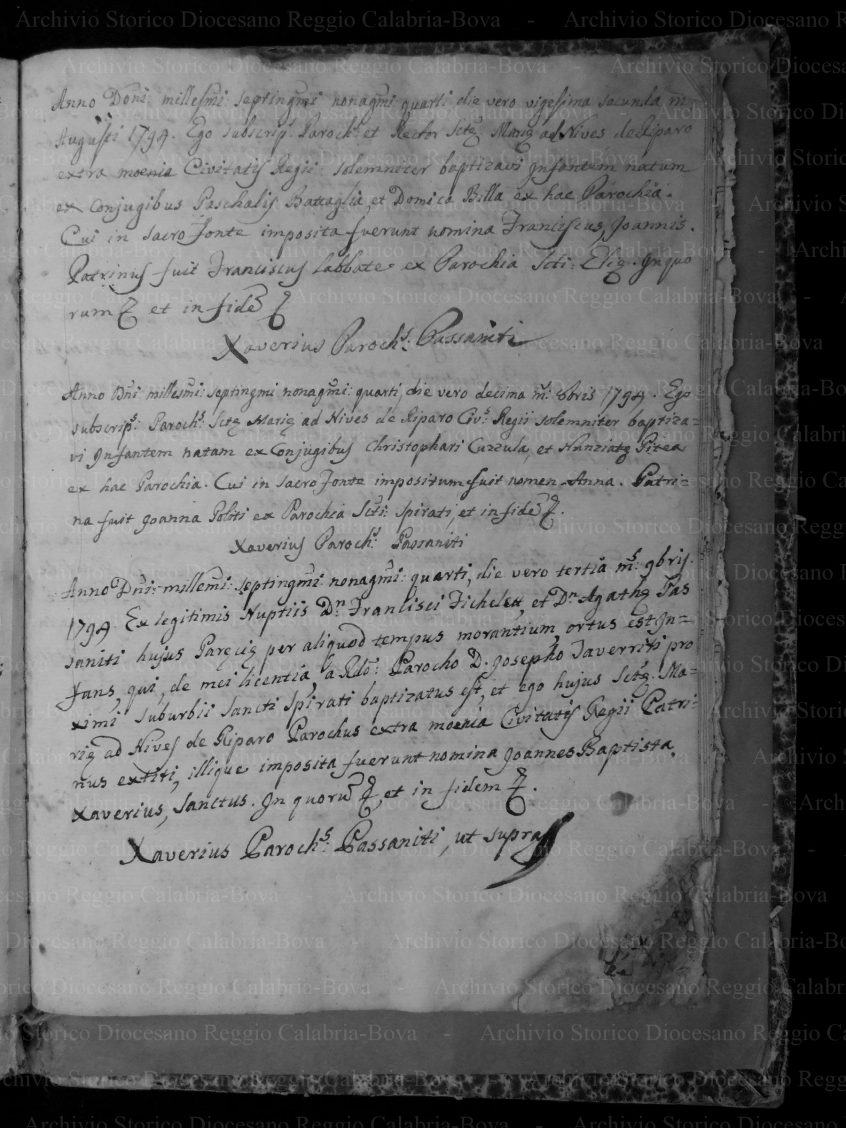 Anno Dōni: millesmi: septingmi nonagmi: quarti, die vero vigesima secunda m̄:
Augusti 1794. Ego subscrip: Paroch: et Rector Sctę Marię ad Nives de Riparo
extra moenia Civitatis Regii: solemniter baptizavi Infantem natum
ex Conjugibus Paschalis Battaglia, et Domica Billa ex hac Parochia.
Cui in sacro fonte imposita fuerunt nomina Franciscus, Joannis.
Patrinus fuit Franciscus Labbate ex Parochia Scti: Elię. In quo
rum et in fidē
Xaverius Paroch:s Passaniti
Anno Dn̄i millesmi: septingmi nonagmi: quarti, die vero decima m: 8bris 1794. Ego
subscrip:s Paroch:s Sctę Marię ad Nives de Riparo Civ:s Regii solemniter baptiza=
vi Infantem natam ex Conjugibus Christophari Cuzzula, et Nunziatę Pitea
ex hac Parochia. Cui in sacro fonte impositum fuit nomen Anna. Patri=
na fuit Joanna Politi ex Parochia Scti: Spirati, et in fidē
Xaverius Paroch:s Passaniti
Anno Dn̄i: millemi: septingmi nonagmi: quarti, die vero tertia m:s 9bris.
1794. Ex legitimis Nuptiis Dn Francisci et Dn Agathę Pas
saniti hujus Paręcię per aliquod tempus morantium, ortus est In=
fans, qui, de mei licentia a Rdo: Parocho D. Josepho Taverriti pro
ximi Suburbii Sancti Spirati baptizatus est, et ego hujus Sctę Ma=
rię ad Nives de Riparo Parochus extra moenia Civitatis Regii Patri=
nus extiti, illique imposita fuerunt nomina Joannes Baptista,
Xaverius, Sanctus. In quorū et in fidem
Xaverius Paroch:s Passaniti, ut supra
Archivio Storico Diocesano Reggio Calabria-Bova